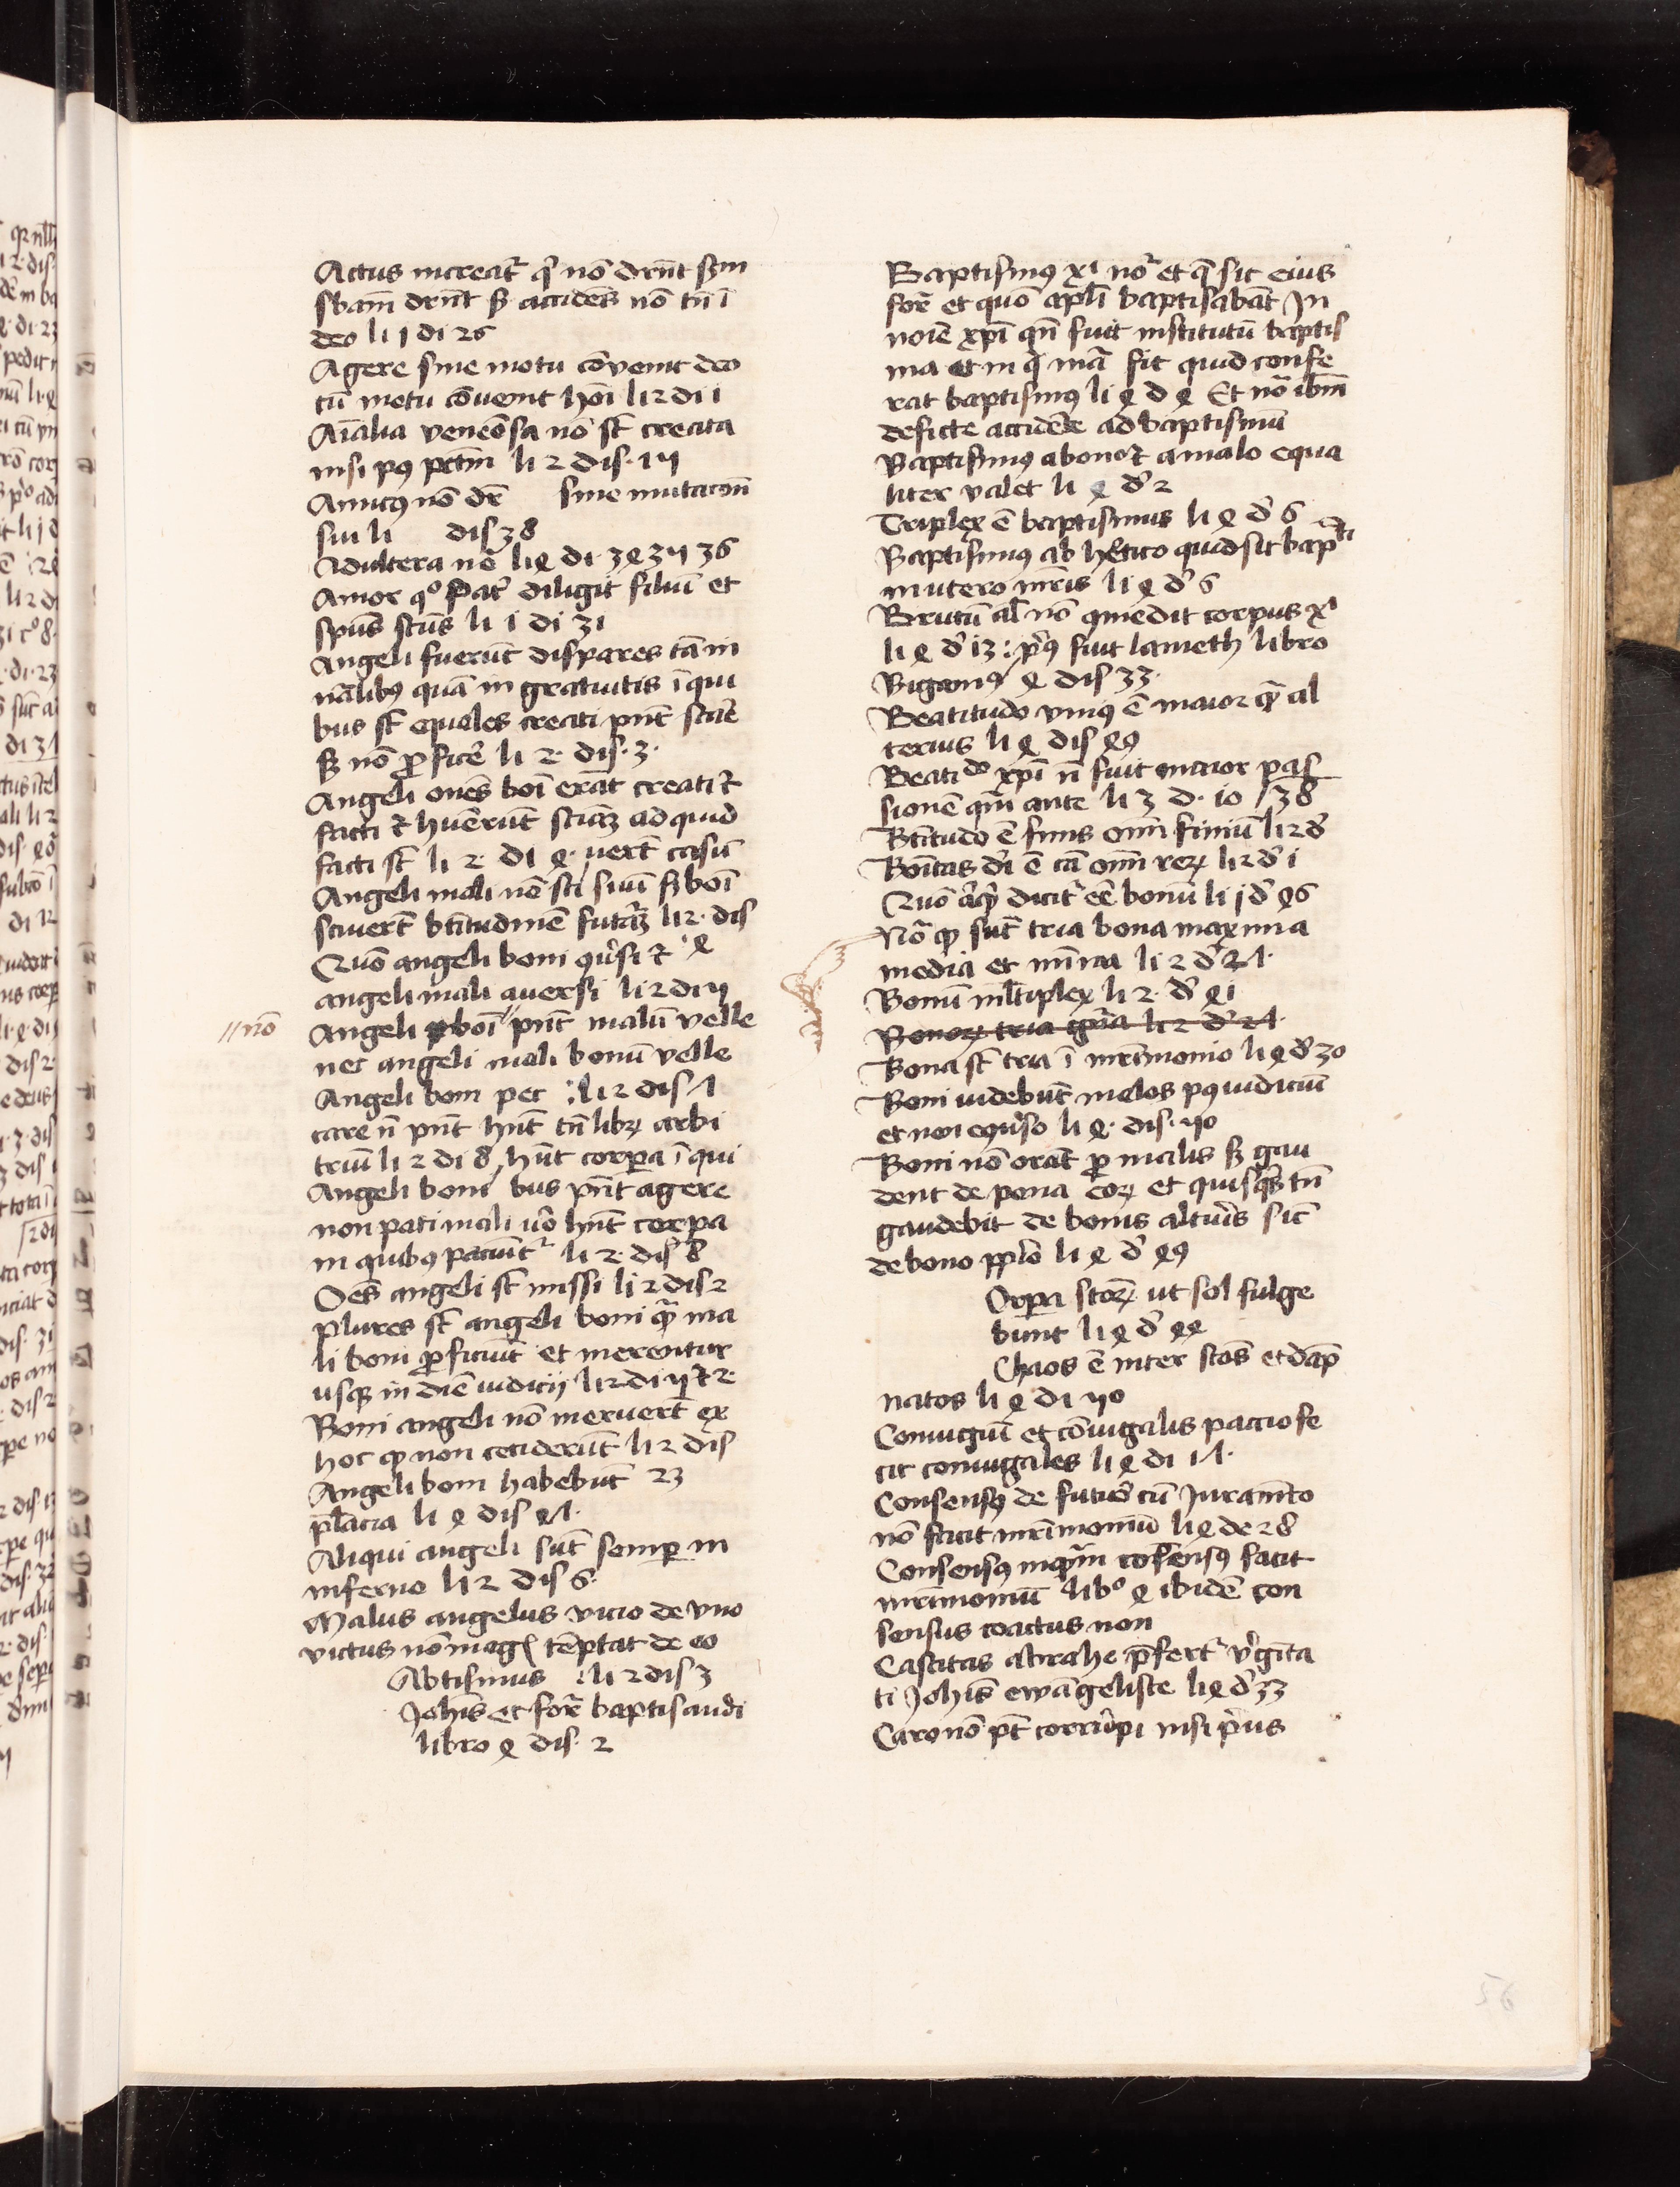 Actus increatꝰ qͥ nō dnr̄t scdm
sb̄am dnr̄t sꝫ accidēs nō tn̄ ī
deo li 1 di 26
Agere sine motu cōvenit deo
cū motu cōvenit hoī li 2 di 1
Aīalia venenōsa nō st̄ creata
nisi pꝰ pctm̄ li 2 dis. 15
Amicꝰ nō dr̄ sine mutacōn
sui li dis 38
Adultera nō li 4 di. 34 35 36
Amor qͦ Patͬ diligit filiū et
spūs scūs li 1 di 31
Angeli fuerūt dispares tā in
nālibꝰ quā in gratuitis ī qui
bus st̄ equales creati pn̄t
sꝫ nō ꝓficē li 2. dis. 3.
Angeli om̄es boī erāt creati ⁊
facti ⁊ huērūt sciāꝫ ad quid
facti st̄ li 2. di 4. uert̄ casū
Angeli mali nō sci sꝫ boī
sciuert̄ bt̄itudinē futāꝫ li 2. dis
Quō angeli boni ꝯūsi ⁊ 4
angeli mali auersi li 2 di 5
//nō Angeli boī // pn̄t malū velle
nec angeli mali bonū velle
Angeli boni pec : li 2 dis 7
care n̄ pn̄t hn̄t tn̄ libꝝ arbi
triū li 2 di 8 hn̄t corpora ī qui
Angeli boni bus pn̄t agere
non pati mali uͦ hn̄t corpa
in quibꝰ paciūtͬ li 2. dis 8
Oēs angeli st̄ missi li 2 dis 2
Plures st̄ angeli boni qͣ ma
li boni ꝓficiūt et merentur
usqꝫ in diē iudicij li 2 di 11 ⁊ 2.
Boni angeli nō meruert̄ ex
hoc ꝙ non ceciderūt li 2 dis
Angeli boni habebūt 23
pl̄acia li 4 dis 47.
Aliqui angeli sūt semper in
inferno li 2 dis 6.
Malus angelus vicio de vno
victus nō magͥ tēptat de eo
Abtismus : li 2 dis 3
Johīs et for̄ baptisandi
libro 4 dis. 2
Baptismꝰ xͥ noͬ et q̄ sit eius
for̄ et quō apl̄i baptisabāt Jn
noīe xp̄i qn̄ fuit institutū baptis
ma et in qͣ mā fit quid confe
rat baptismꝰ li 4 d 4 Et nō ibm̄
deficte accidēte ad baptismū
Baptismꝰ a bono ⁊ a malo equa
liter valet li 4 dͥ 2
Triplex ē baptismus li 4 dͥ 6
Baptismꝰ ab hetico quid sit bapti
in utero mr̄is li 4 dͥ 6
Brutū al̄ nō ꝯmedit corpus xͥ
li 4 dͥ 13 : p̄ꝰ fuit lameth libro
Bigamꝰ 4 dis 33.
Beatitudo vniꝰ ē maior qͣ al
terius li 4 dis 49
Beatido xp̄i n̄ fuit maior pas
sionē qm̄ ante li 3 d. 10 / 38
Bt̄itudo ē finis om̄ finiū li 2 dͥ
Boītas dī ē cā om̄ reꝝ li 2 dͥ 1
Quō dicitͬ eē bonū li 1 dͥ 46
Nō ꝙ sūt tria bona maxima
media et mīma li 2 dͥ 27.
Bonū ml̄tiplex li 2. dͥ 41
Bonoꝝ tria gn̄a li 2 dͥ 27.
Bona st̄ tria ī mr̄imonio li 4 dͥ 30
Boni uidebūt malos pꝰ iudiciū
et non eq̄uso li 4. dis. 50
Boni nō orāt ꝓ malis sꝫ gau
dent de pena eoꝝ et quisqꝫ tn̄
gaudebit de bonis altiu̅s sic̄
de bono ppͦo li 4 dͥ 49
Orpa scoꝝ ut sol fulge
būnt li 4 dͥ 44
Chaos ē inter scōs et dāp
natos li 4 di 50
Coniugiū et cōiugalis pactio fe
cit coniugales li 4 di 17.
Consensꝰ de futuͦ cū Juramēto
nō facit mr̄imoniū li 4 de 28
Consensꝰ inqͣm consensꝰ facit
mr̄imoniū libͦ 4 ibidē con
sensus coactus non
Castitas abrahe p̄fertͬ vͥgīta
ti Johīs ewāgeliste li 4 dͥ 33
Caro nō pt̄ corrūpi nisi pͥus
56